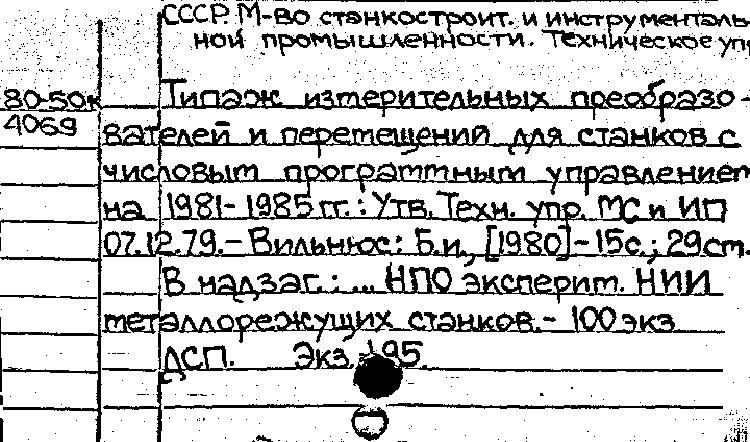 СССР. М-во станкостроит. и инструменталь-
ной промышленности. Техническое упр
80-50к
4069
Типаж измерительных преобразо-
вателей и перемещений для станков с
числовым программным управлением
на 1981-1985 гг.: Утв. Техн. упр. МС и ИП
07.12.79.- Вильнюс: Б.и., [1980]-15с.; 29см.
В надзаг.: ... НПО эксперим. НИИ
металлорежущих станков.- 100 экз
ДСП. Экз. 195.